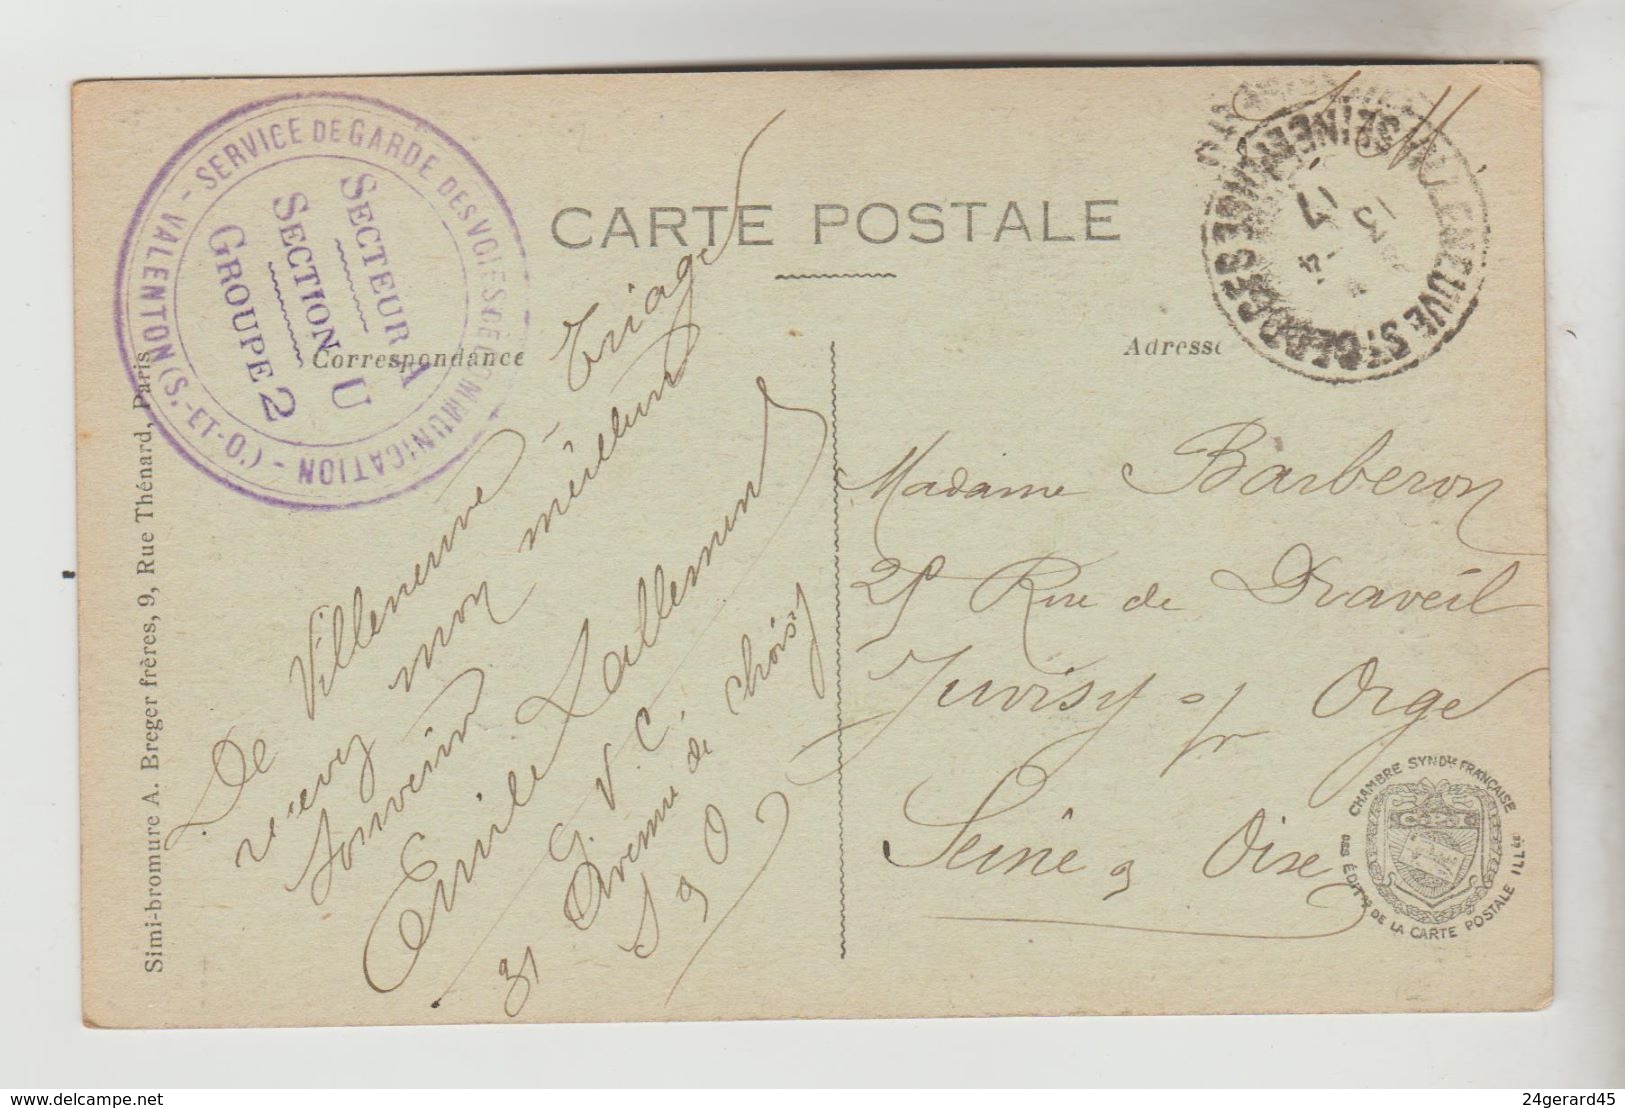 CARTE POSTALE
Correspondance
Adresse
SERVICE DE GARDE DES VOIES DE COMMUNICATION - VALENTON (S.-ET-O.) -
SECTEUR A
SECTION U
GROUPE 2
VILLENEUVE ST GEORGES
SEINE ET OISE
13
17
F. M.
De Villeneuve - Triage
recevez mon meilleur
Souvenir
Emile Lallemand
G. V. C.
31 Avenue de Choisy
S & O
Madame Barberon
25 Rue de Draveil
Juvisy s/ Orge
Seine & Oise
CHAMBRE SYNDle FRANÇAISE
DES ÉDITrs DE LA CARTE POSTALE ILLée
Simi-bromure A. Breger frères, 9, Rue Thénard, Paris
delcampe.net
24gerard45